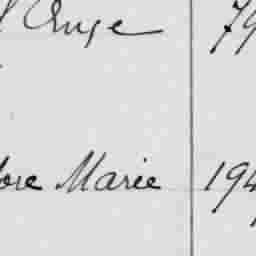 l'Ange 79
ore Marie 194